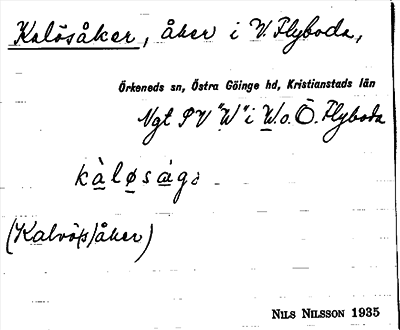 Kalösåker, åker i V. Flyboda,
Örkeneds sn, Östra Göinge hd, Kristianstads län
Ngt SV "W" i W.o.Ö. Flyboda
kàløsåga
(Kalvöjs/åker)
NILS NILSSON 1935